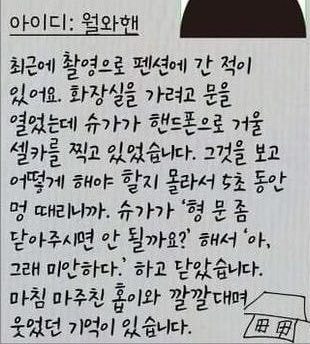 아이디: 월와핸
최근에 촬영으로 펜션에 간 적이
있어요. 화장실을 가려고 문을
열었는데 슈가가 핸드폰으로 거울
셀카를 찍고 있었습니다. 그것을 보고
어떻게 해야 할지 몰라서 5초 동안
멍 때리니까. 슈가가 '형 문 좀
닫아주시면 안 될까요?' 해서 '아,
그래 미안하다.' 하고 닫았습니다.
마침 마주친 홉이와 깔깔대며
웃었던 기억이 있습니다.